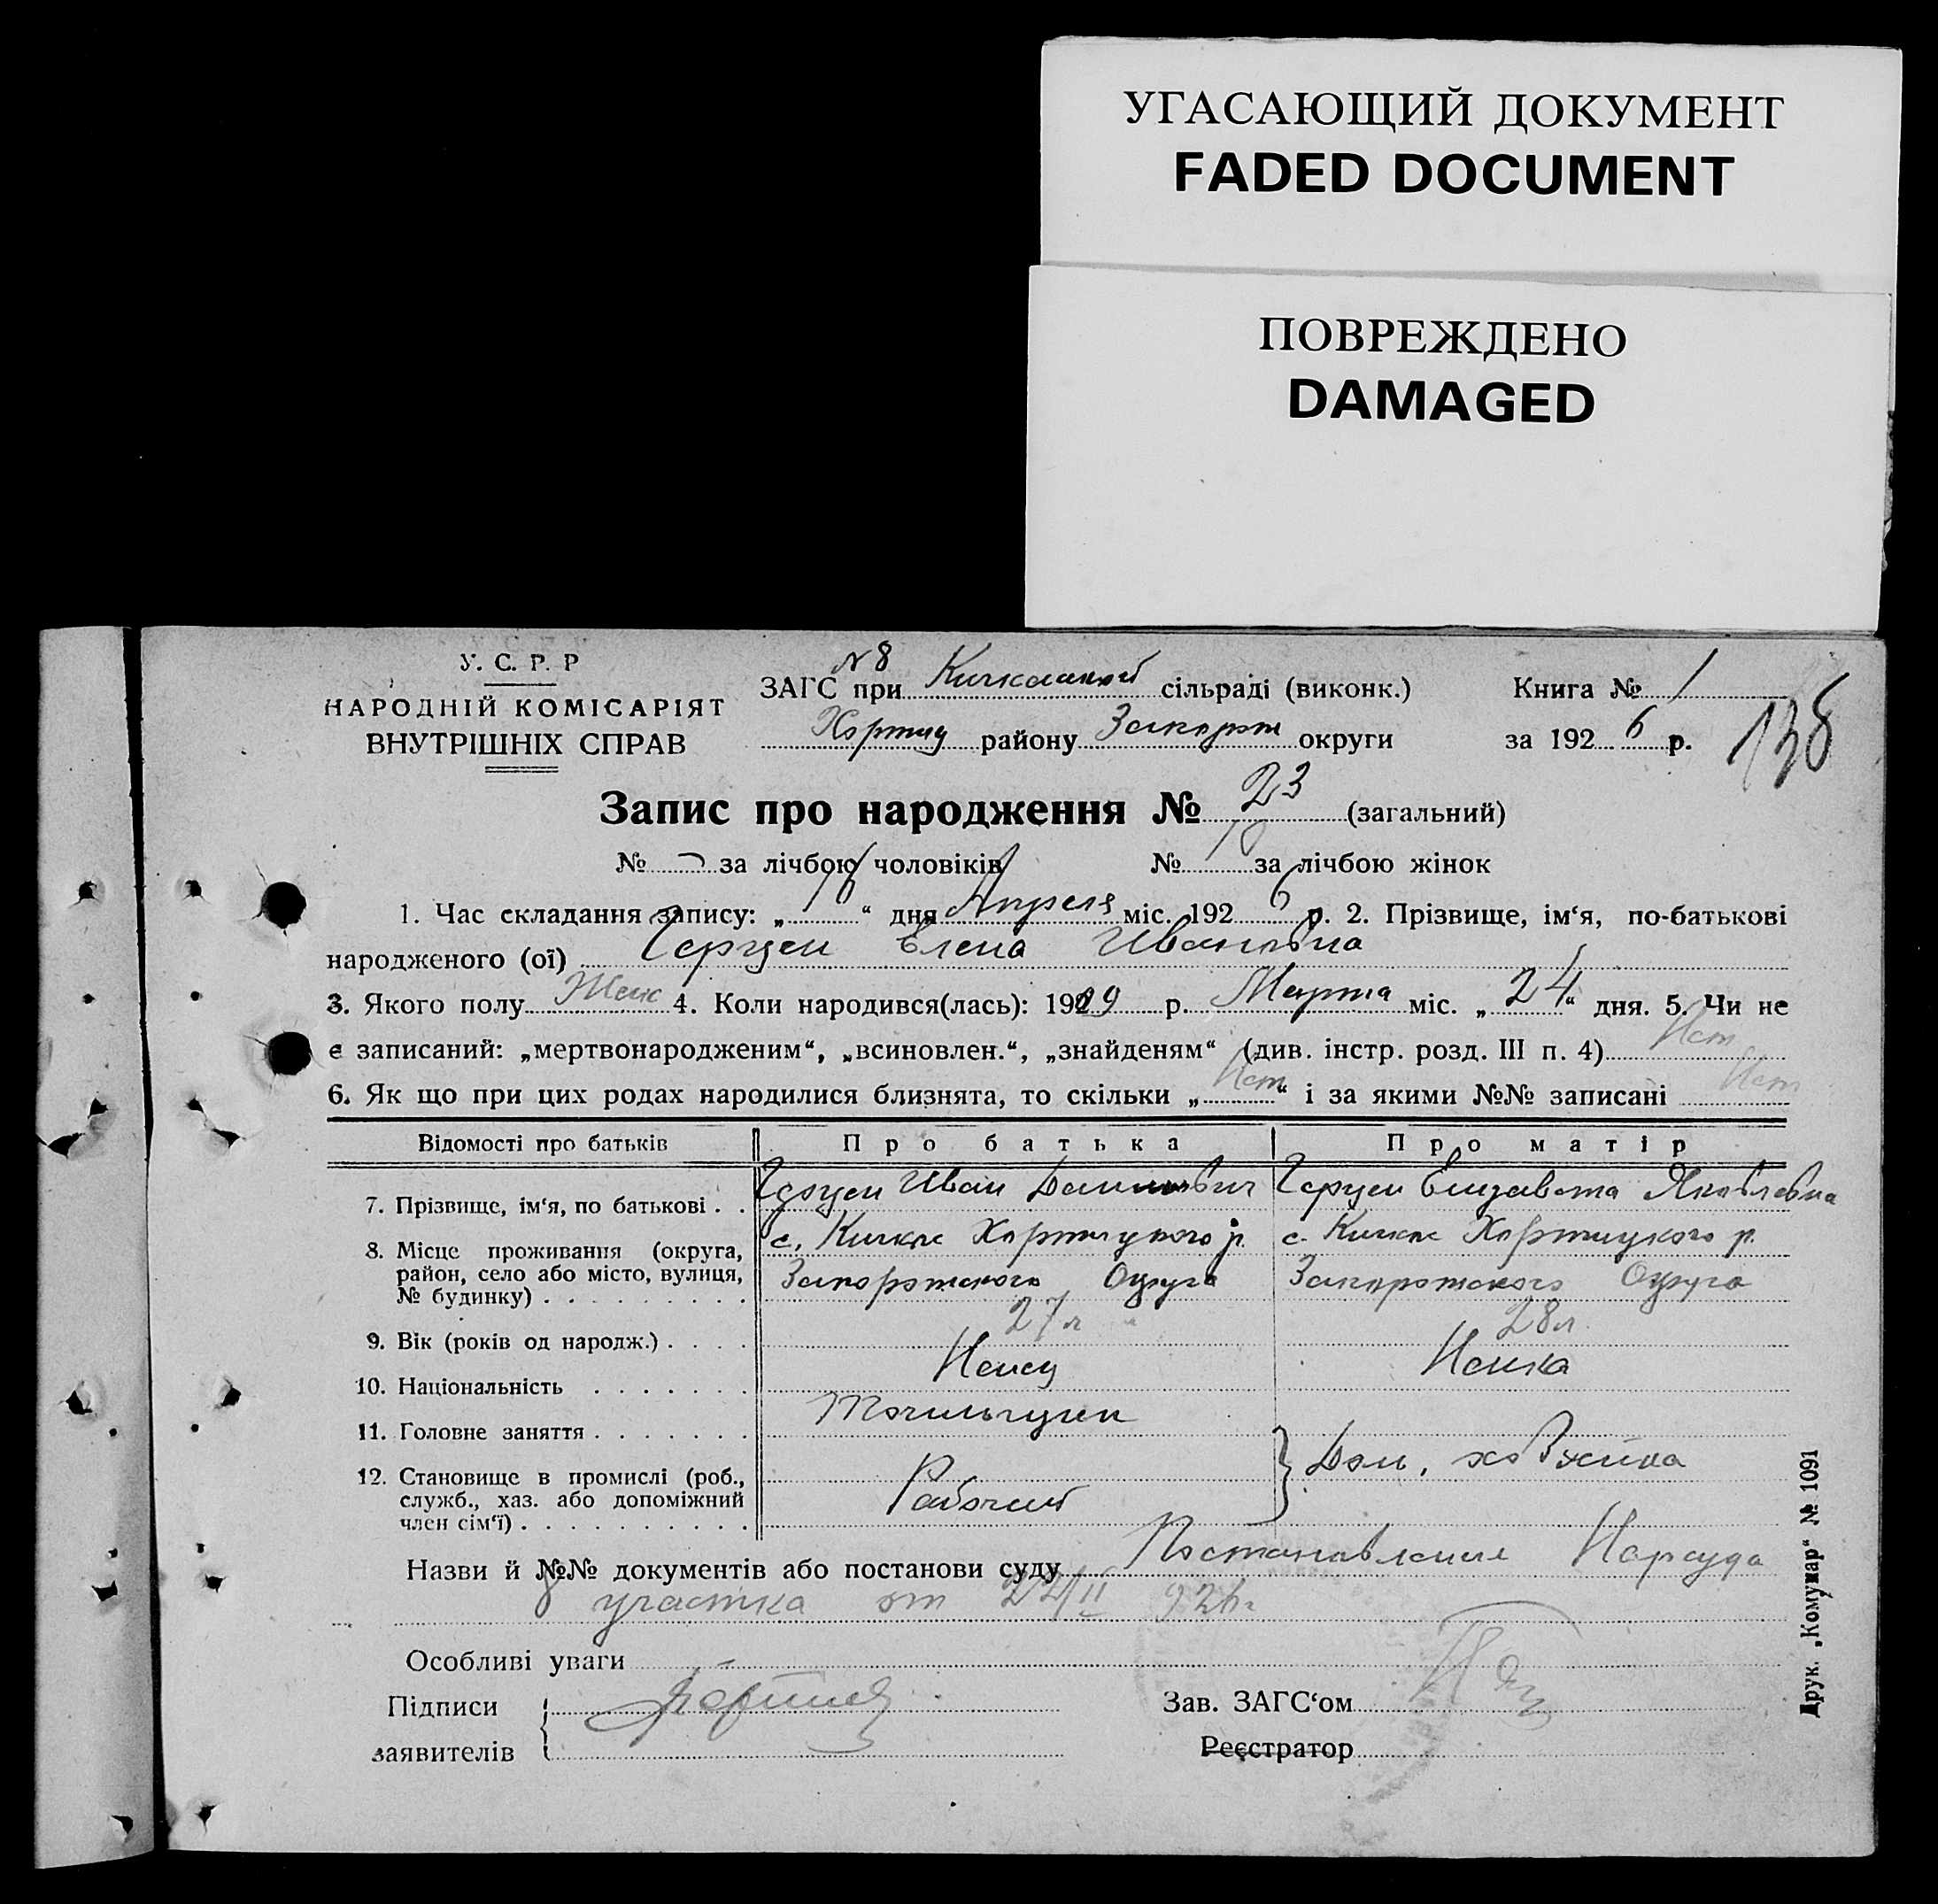 УГАСАЮЩИЙ ДОКУМЕНТ
FADED DOCUMENT
ПОВРЕЖДЕНО
DAMAGED
У. С. Р. Р
НАРОДНІЙ КОМІСАРІЯТ
ВНУТРІШНІХ СПРАВ
N 8
ЗАГС при Кичкасской сільраді (виконк.)
Хортиц району Запорож округи
Книга № 1
за 192 6 р.
138
Запис про народження № 23 (загальний)
№ за лічбою чоловіків № 10 за лічбою жінок
1. Час складання запису: „ 16 “ дня Апреля міс. 192 6 р. 2. Прізвище, ім‘я, по-батькові
народженого (ої) Герцен Елена Ивановна
3. Якого полу Женс 4. Коли народився(лась): 19 р. Марта міс. „ 24 “ дня. 5. Чи не
є записаний: „мертвонародженим“, „всиновлен.“, „знайденям“ (див. інстр. розд. III п. 4) Нет
6. Як що при цих родах народилися близнята, то скільки „ Нет “ і за якими №№ записані Нет
Відомості про батьків Про батька Про матір
7. Прізвище, ім‘я, по батькові . . Герцен Иван Данилович Герцен Елизавета Яковлевна
8. Місце проживання (округа, район, село або місто, вулиця, № будинку) . . . . . . . . .
с. Кичкас Хортицкого р. с. Кичкас Хортицкого р.
Запорожского Округа Запорожского Округа
9. Вік (років од народж.) . . . . 27 л 28 л.
10. Національність . . . . . . . Немец Немка
11. Головне заняття . . . . . . .
12. Становище в промислі (роб., служб., хаз. або допоміжний член сім‘ї) . . . . . . . . . .
Рабочий Дом. хозяйка
Назви й №№ документів або постанови суду Постановление Нарсуда
8 участка от 22/II 926г
Особливі уваги
Підписи
заявителів
Зав. ЗАГС‘ом
Реєстратор
Друк. „Комунар“ № 1091